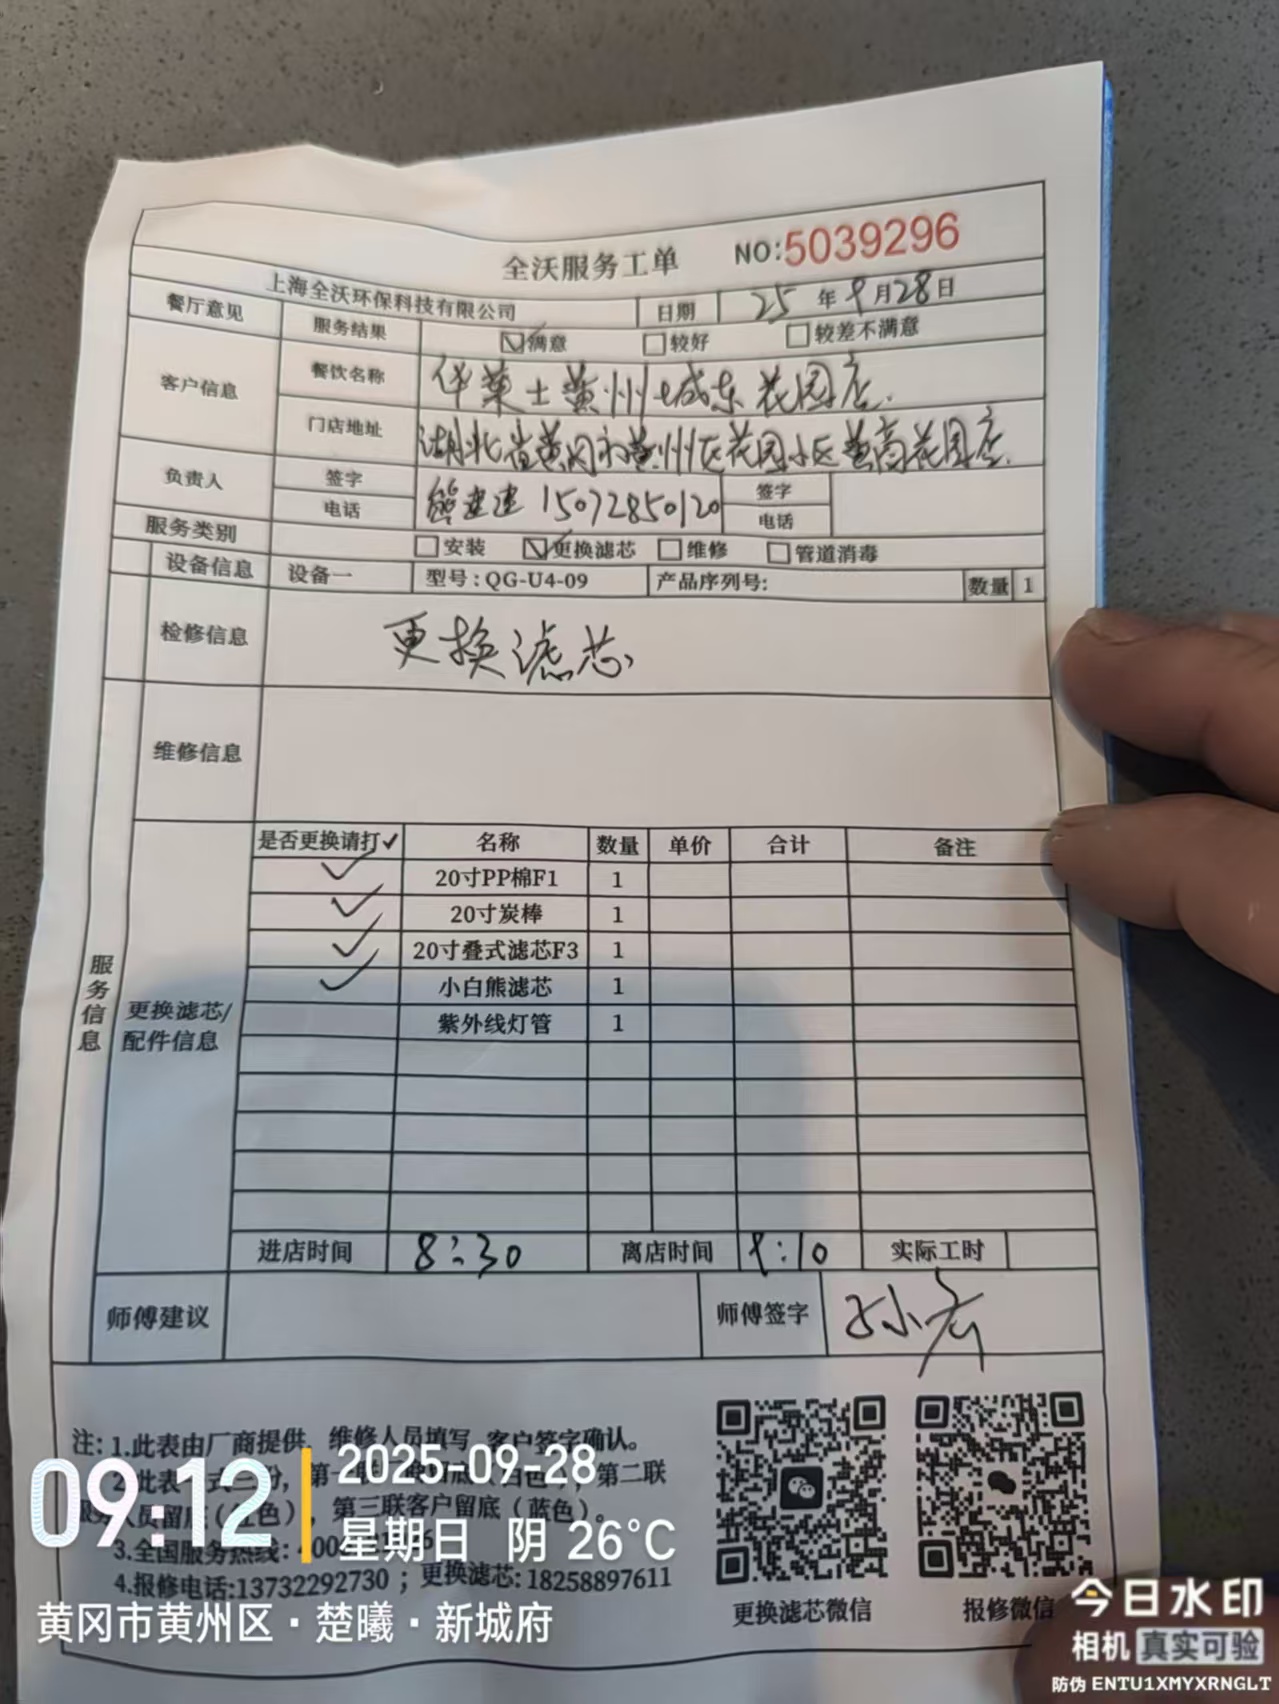 全沃服务工单 NO:5039296
上海全沃环保科技有限公司 日期 25年9月28日
餐厅意见 服务结果 满意 较好 较差不满意
客户信息 餐饮名称 华莱士黄州城东花园店
门店地址 湖北省黄冈市黄州区花园小区黄商花园店
负责人 签字 电话 熊建建 15072850120 签字 电话
服务类别 安装 更换滤芯 维修 管道消毒
设备信息 设备一 型号:QG-U4-09 产品序列号: 数量 1
检修信息 更换滤芯
维修信息
服务信息
更换滤芯/配件信息
是否更换请打✓ 名称 数量 单价 合计 备注
✓ 20寸PP棉F1 1
✓ 20寸炭棒 1
✓ 20寸叠式滤芯F3 1
✓ 小白熊滤芯 1
紫外线灯管 1
进店时间 8:30 离店时间 9:10 实际工时
师傅建议 师傅签字
注:1.此表由厂商提供，维修人员填写，客户签字确认。
2.此表一式三份，第一联，第二联
人员留底(红色)，第三联客户留底(蓝色)。
3.全国服务热线:400
4.报修电话:13732292730；更换滤芯:18258897611
更换滤芯微信 报修微信
09:12 2025-09-28
星期日 阴 26°C
黄冈市黄州区·楚曦·新城府
今日水印
相机 真实可验
防伪 ENTU1XMYXRNGLT